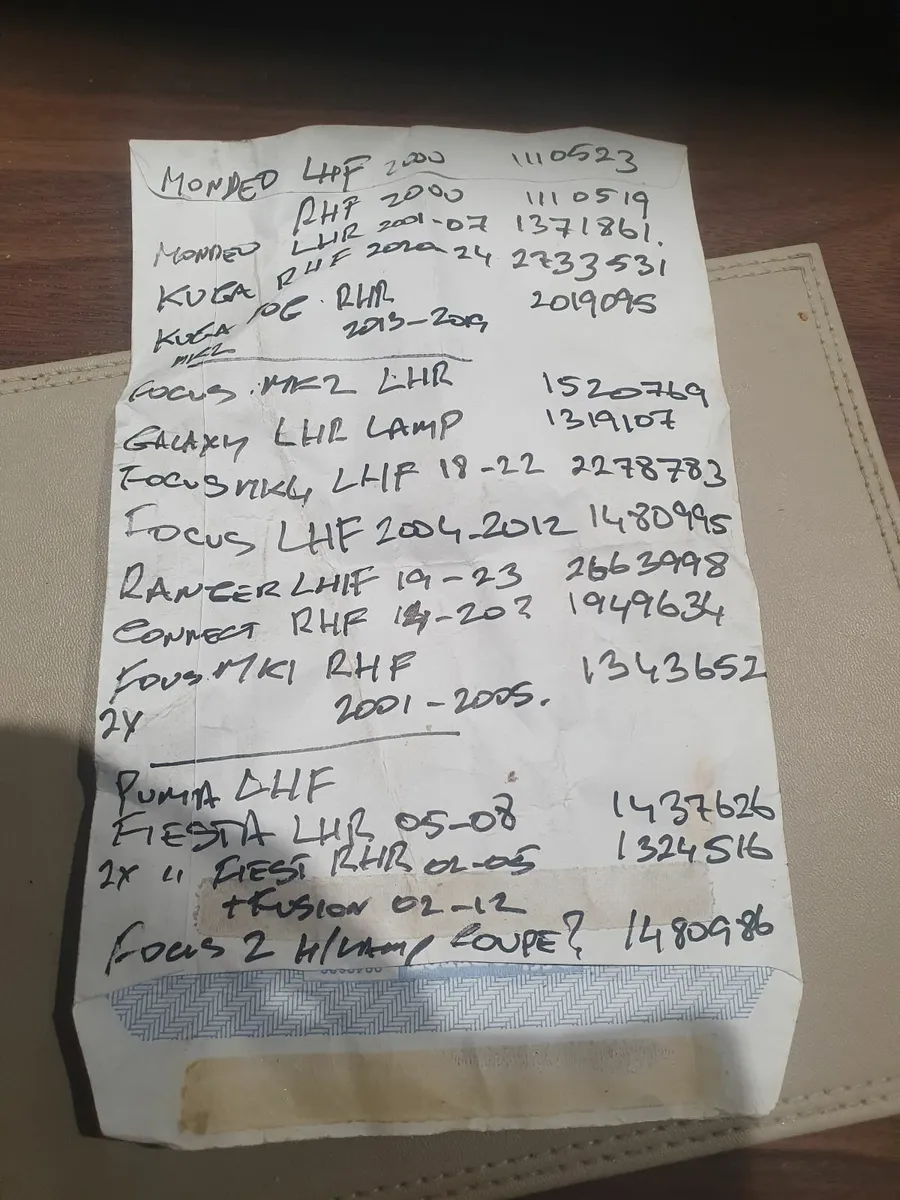 MONDEO LHF 2000 1110523
RHF 2000 1110519
MONDEO LHR 2001-07 1371861.
KUGA RHF 2020-24 2733531
KUGA RHR 2019095
MK2 2013-2019
FOCUS MK2 LHR 1520769
GALAXY LHR LAMP 1319107
FOCUS MK4 LHF 18-22 2278783
FOCUS LHF 2004-2012 1480995
RANGER LHF 19-23 2663998
CONNECT RHF 14-20? 1949634
FOUS MK1 RHF 1343652
2X 2001-2005.
PUMA LHF
FIESTA LHR 05-08 1437626
2X " FIEST RHR 02-05 1324516
+FUSION 02-12
FOCUS 2 H/LAMP COUPE? 1480986